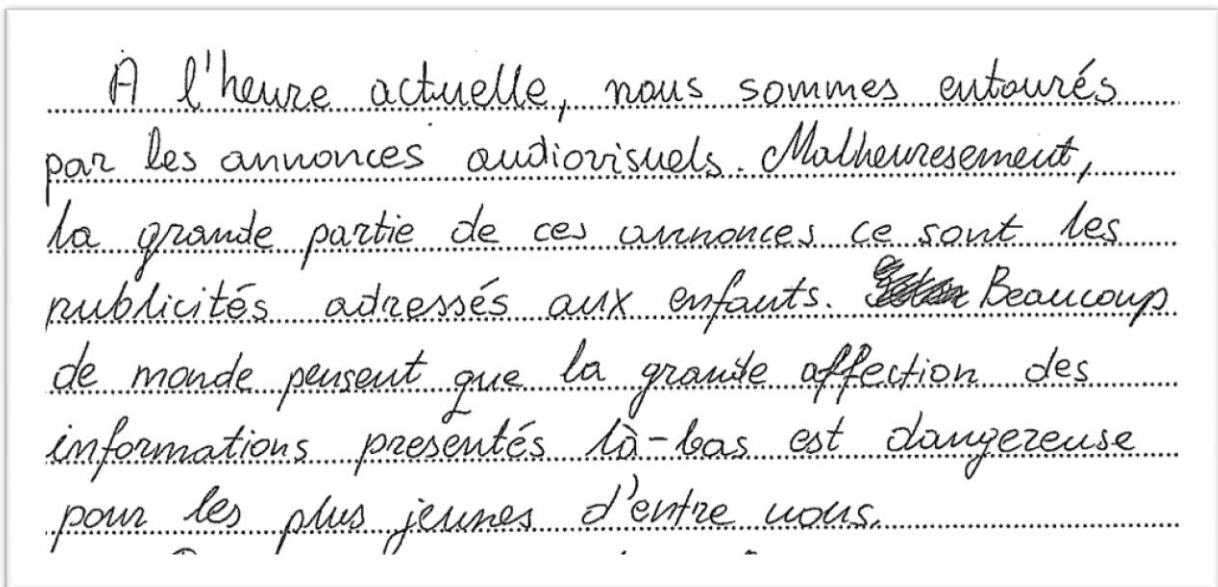 A l'heure actuelle, nous sommes entourés
par les annonces audiovisuels. Malheuresement,
la grande partie de ces annonces ce sont les
publicités adressés aux enfants. Beaucoup
de monde pensent que la grande affection des
informations presentés là-bas est dangereuse
pour les plus jeunes d'entre nous.